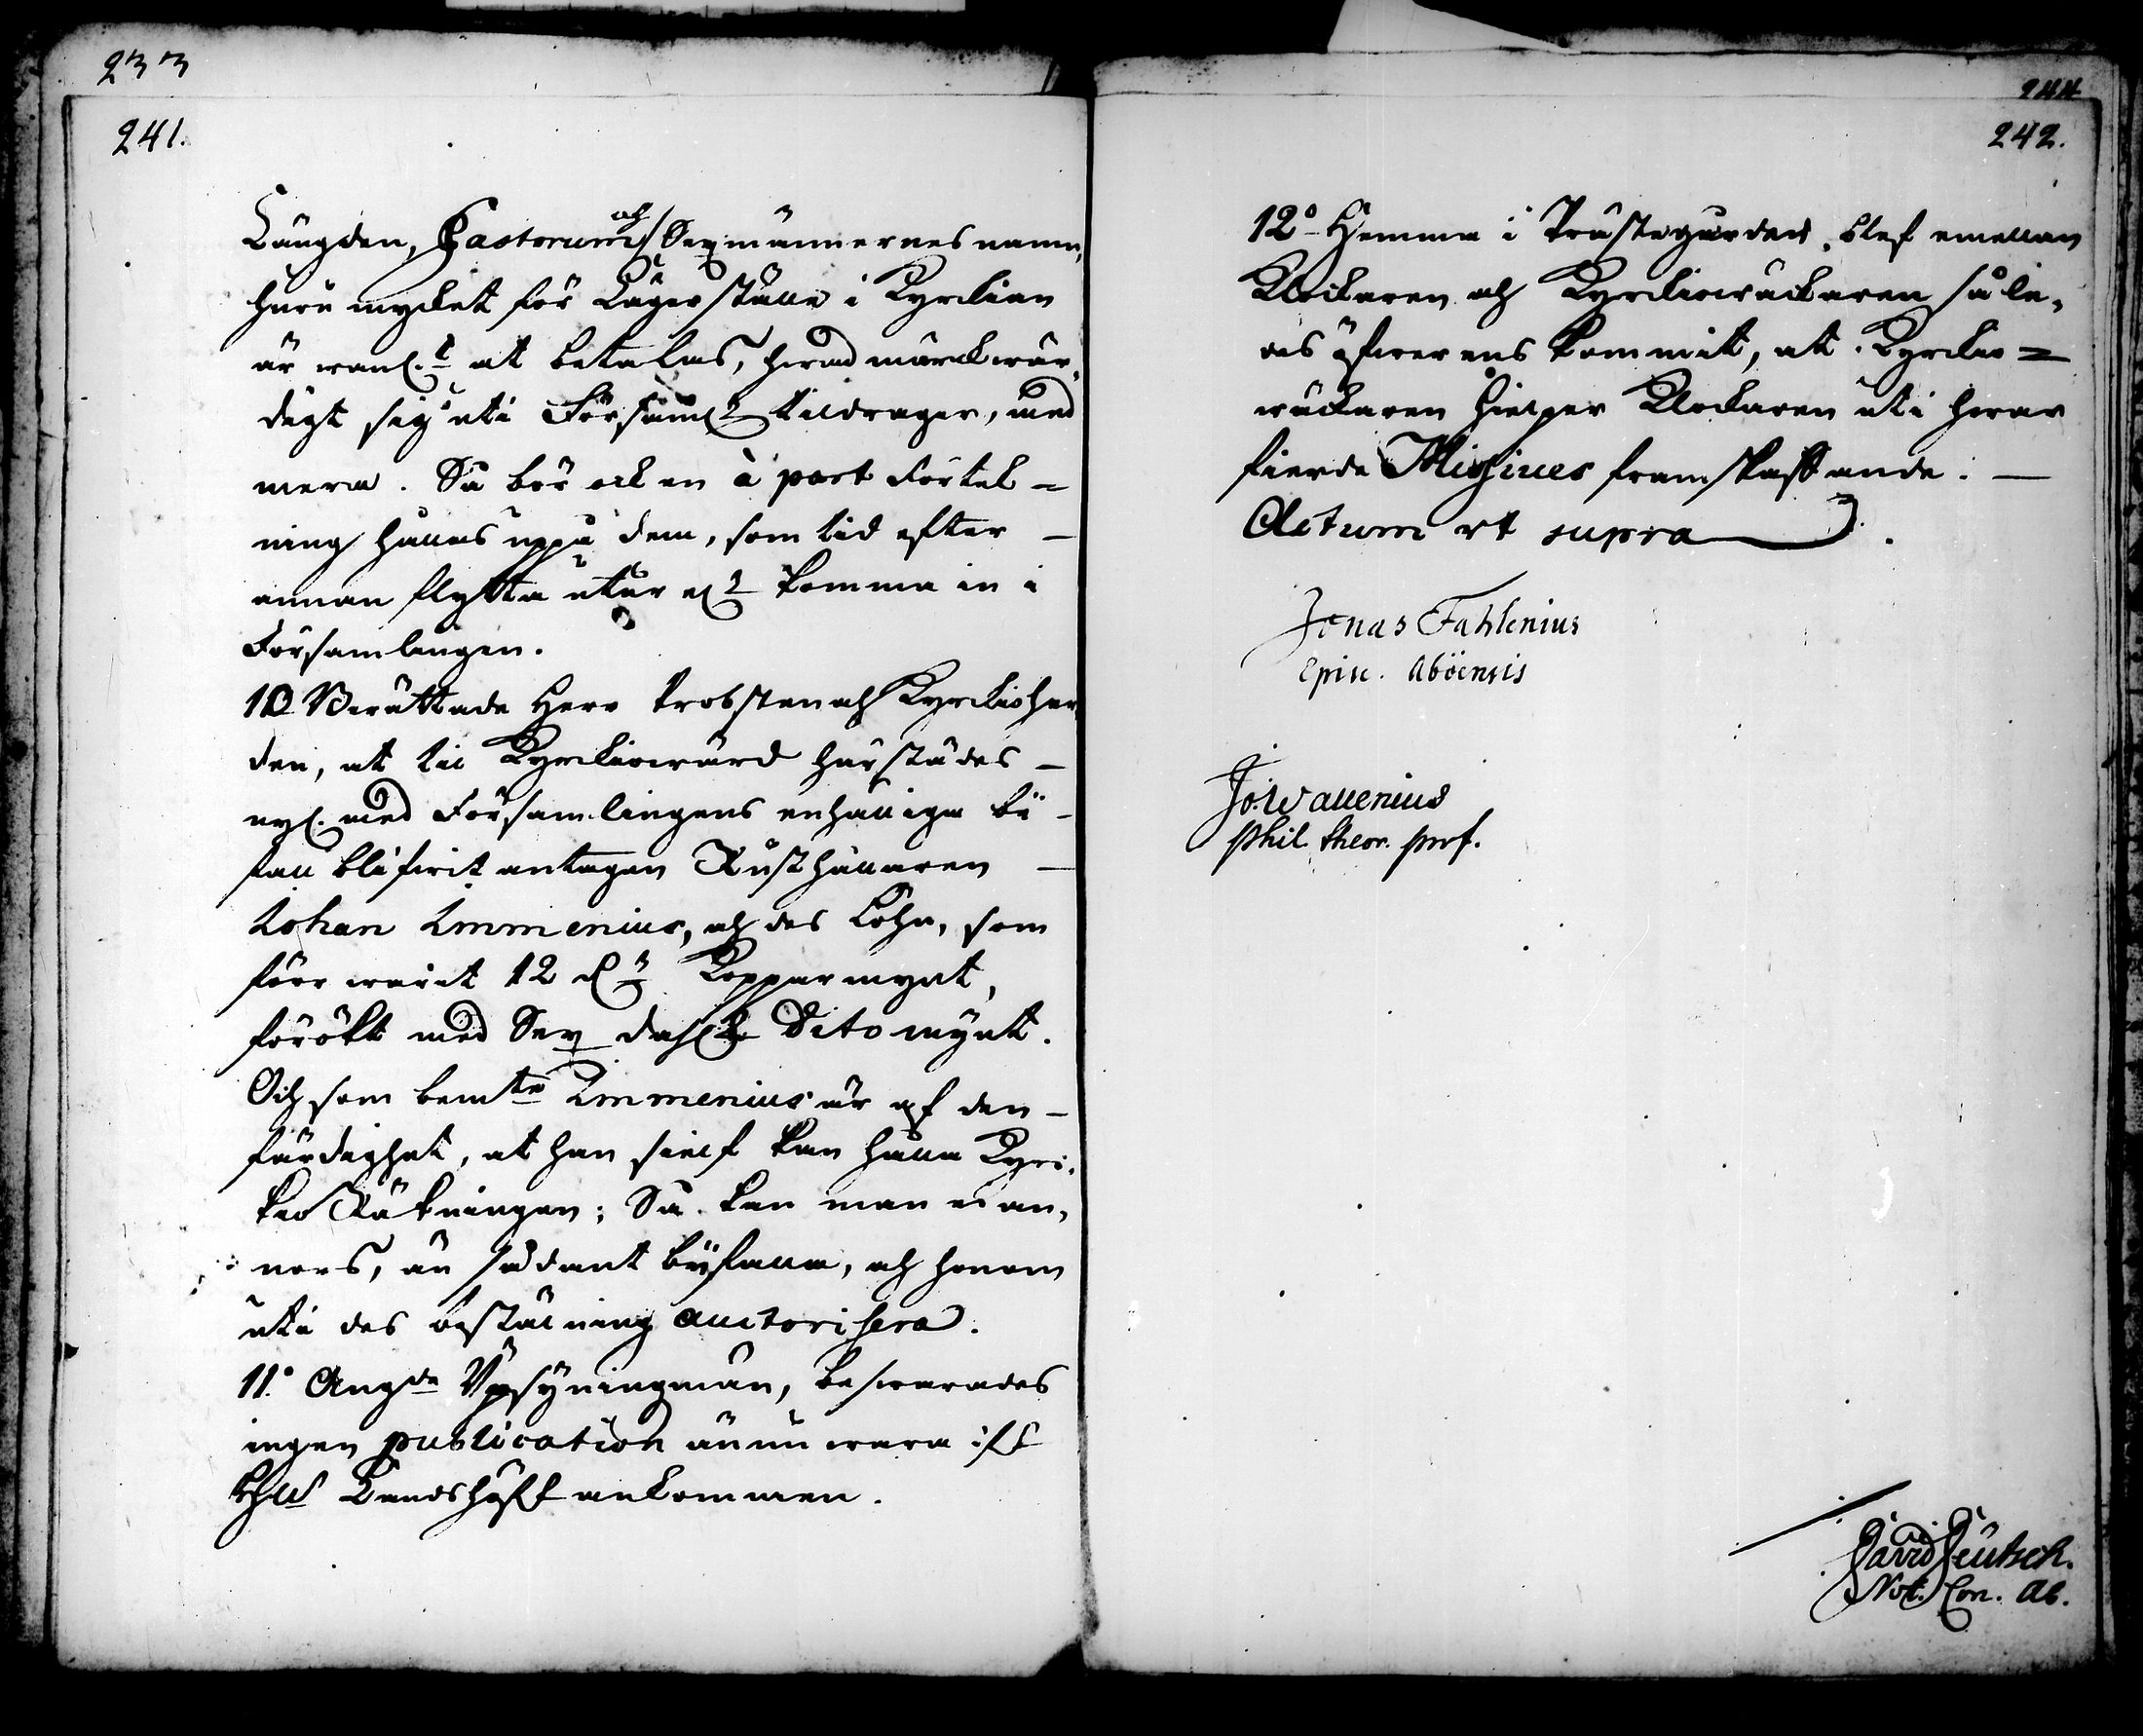 233
241.
Längden, Pastorum och Sexmännernes namn,
huru mycket för Lägerställe i Kyrkian
är wanl.t at betalas, hwad märckwär,
digt sig uti Församl. tildrager, med
mera. Så bör ock en à part Förtek=
ning hållas uppå dem, som tid efter
annan flytta utur el.r komma in i
Församlingen.
10 Berättade Herr Probsten och Kyrckioher
den, at til Kyrckiowärd härstädes
nyl. med Församlingens enhällige bi-
fall blifwit antagen Rusthållaren
Johan Immenius, och des Löhn, som
förr warit 12 d.r Kopparmynt,
förökt med Sex dahl.r Dito mynt.
Och som bem.te Immenius är af den
färdighet, at han sielf kan hålla Kyri,
kio Räkningen; Så kan man ei an,
nors, än sådant bijfalla, och honom
uti des beställning auctorisera.
11.o Ang.de Upsÿningmän, beswarades
ingen publication ännu wara ifr.
Landshöfd ankommen.
244
242.
12.o Hemma i Prästegården, blef emellan
Klockaren och Kyrckiowäckaren såle,
des öfwerens kommit, at Kyrckio=
wäckaren hielper Klockaren uti hwar
fierde Missives framskaffande.
Actum ut supra.
Jonas Fahlenius
Episc. Aböensis
Jo. Wallenius
Phil. theor. Prof.
David Deutsch.
Not. Con. Ab.